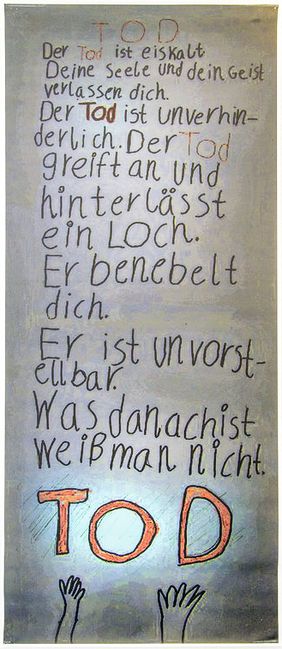 TOD
Der Tod ist eiskalt
Deine Seele und dein Geist
verlassen dich.
Der Tod ist unverhin-
derlich. Der Tod
greift an und
hinterlässt
ein LOCH.
Er benebelt
dich.
Er ist unvorst-
ellbar.
Was danach ist
weiß man nicht.
TOD